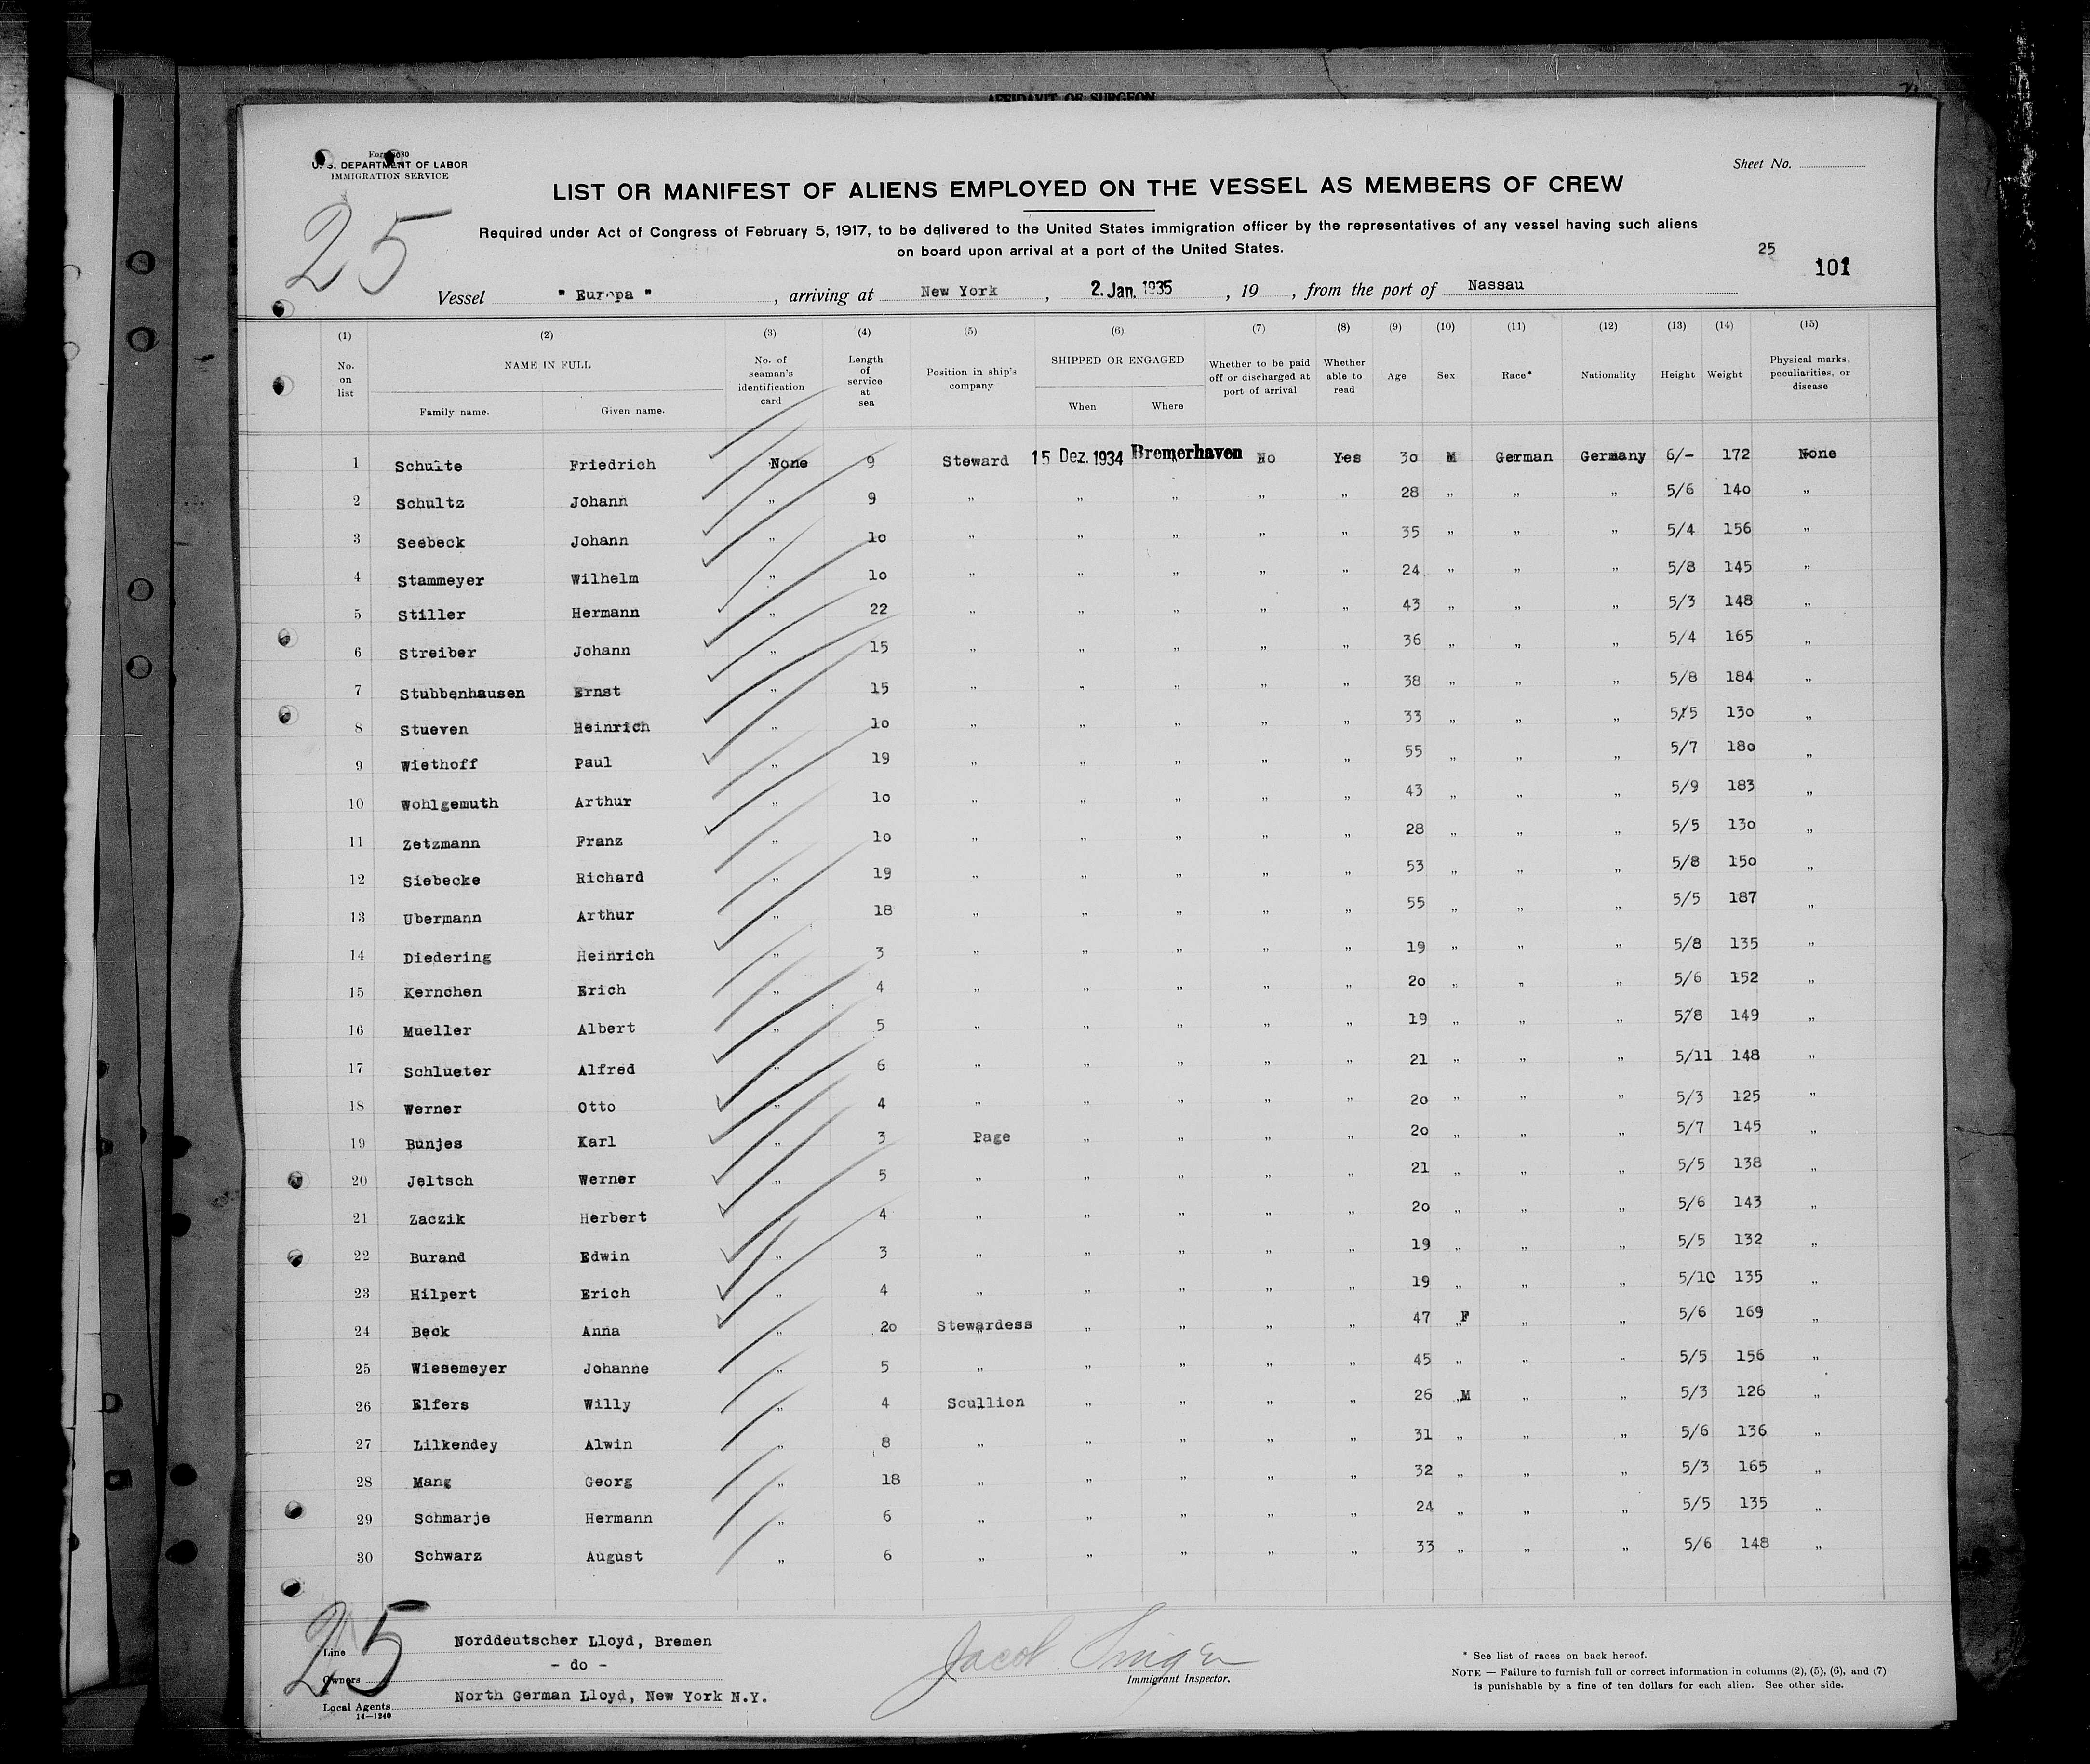 AFFIDAVIT OF SURGEON
U. S. DEPARTMENT OF LABOR
IMMIGRATION SERVICE
Sheet No.
25
LIST OR MANIFEST OF ALIENS EMPLOYED ON THE VESSEL AS MEMBERS OF CREW
Required under Act of Congress of February 5, 1917, to be delivered to the United States immigration officer by the representatives of any vessel having such aliens
on board upon arrival at a port of the United States.
25
101
Vessel " Europa " , arriving at New York , 2. Jan. 1935 , 19 , from the port of Nassau
(1) (2) (3) (4) (5) (6) (7) (8) (9) (10) (11) (12) (13) (14) (15)
No. on list NAME IN FULL Family name. Given name. No. of seaman's identification card Length of service at sea Position in ship's company SHIPPED OR ENGAGED When Where Whether to be paid off or discharged at port of arrival Whether able to read Age Sex Race* Nationality Height Weight Physical marks, peculiarities, or disease
1 Schulte Friedrich None 9 Steward 15 Dez. 1934 Bremerhaven No Yes 30 M German Germany 6/- 172 None
2 Schultz Johann " 9 " " " " " 28 " " " 5/6 140 "
3 Seebeck Johann " 10 " " " " " 35 " " " 5/4 156 "
4 Stammeyer Wilhelm " 10 " " " " " 24 " " " 5/8 145 "
5 Stiller Hermann " 22 " " " " " 43 " " " 5/3 148 "
6 Streiber Johann " 15 " " " " " 36 " " " 5/4 165 "
7 Stubbenhausen Ernst " 15 " " " " " 38 " " " 5/8 184 "
8 Stueven Heinrich " 10 " " " " " 33 " " " 5/5 130 "
9 Wiethoff Paul " 19 " " " " " 55 " " " 5/7 180 "
10 Wohlgemuth Arthur " 10 " " " " " 43 " " " 5/9 183 "
11 Zetzmann Franz " 10 " " " " " 28 " " " 5/5 130 "
12 Siebecke Richard " 19 " " " " " 53 " " " 5/8 150 "
13 Ubermann Arthur " 18 " " " " " 55 " " " 5/5 187 "
14 Diedering Heinrich " 3 " " " " " 19 " " " 5/8 135 "
15 Kernchen Erich " 4 " " " " " 20 " " " 5/6 152 "
16 Mueller Albert " 5 " " " " " 19 " " " 5/8 149 "
17 Schlueter Alfred " 6 " " " " " 21 " " " 5/11 148 "
18 Werner Otto " 4 " " " " " 20 " " " 5/3 125 "
19 Bunjes Karl " 3 Page " " " " 20 " " " 5/7 145 "
20 Jeltsch Werner " 5 " " " " " 21 " " " 5/5 138 "
21 Zaczik Herbert " 4 " " " " " 20 " " " 5/6 143 "
22 Burand Edwin " 3 " " " " " 19 " " " 5/5 132 "
23 Hilpert Erich " 4 " " " " " 19 " " " 5/10 135 "
24 Beck Anna " 20 Stewardess " " " " 47 F " " 5/6 169 "
25 Wiesemeyer Johanne " 5 " " " " " 45 " " " 5/5 156 "
26 Elfers Willy " 4 Scullion " " " " 26 M " " 5/3 126 "
27 Lilkendey Alwin " 8 " " " " " 31 " " " 5/6 136 "
28 Mang Georg " 18 " " " " " 32 " " " 5/3 165 "
29 Schmarje Hermann " 6 " " " " " 24 " " " 5/5 135 "
30 Schwarz August " 6 " " " " " 33 " " " 5/6 148 "
25
Line Norddeutscher Lloyd, Bremen
Owners - do -
Local Agents North German Lloyd, New York N.Y.
14—1240
Jacob Singer
Immigrant Inspector.
* See list of races on back hereof.
NOTE — Failure to furnish full or correct information in columns (2), (5), (6), and (7)
is punishable by a fine of ten dollars for each alien. See other side.